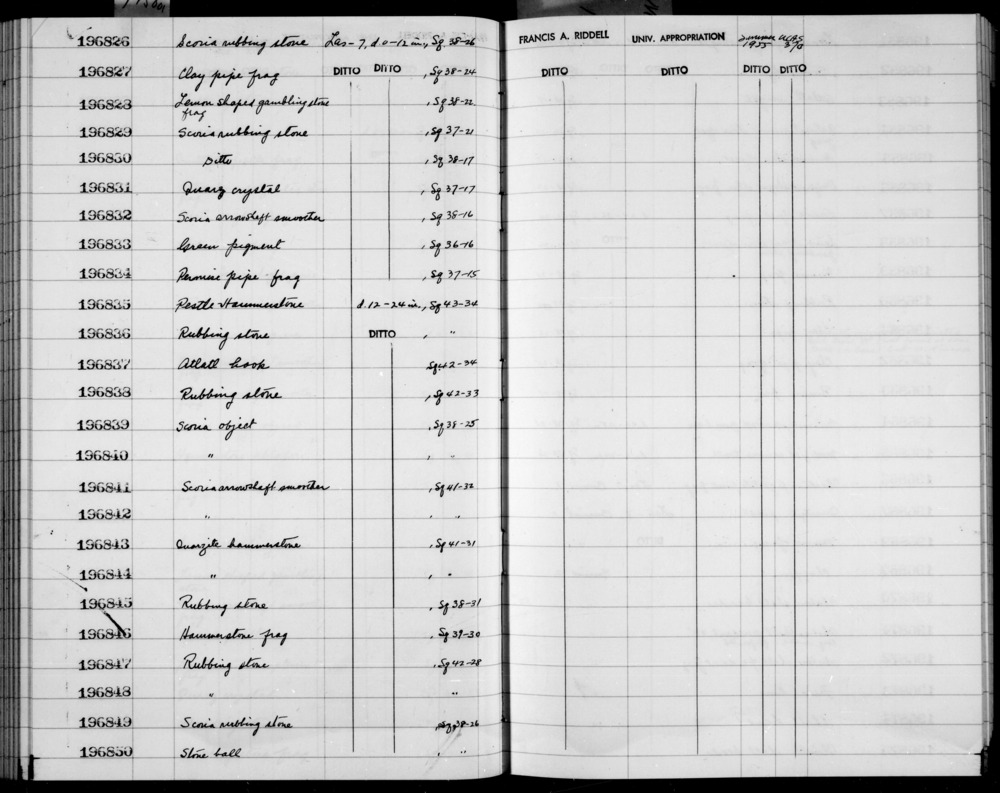 196826 Scoria rubbing stone Las-7, d. 0-12 in., Sq. 38-26 FRANCIS A. RIDDELL UNIV. APPROPRIATION Summer 1955 UCAS 370
196827 Clay pipe frag DITTO DITTO , Sq 38-24 DITTO DITTO DITTO DITTO
196828 Lemon shaped gambling stone frag , Sq 38-22
196829 Scoria rubbing stone , Sq 37-21
196830 Ditto , Sq 38-17
196831 Quarz crystal , Sq 37-17
196832 Scoria arrowshaft smoother , Sq 38-16
196833 Green pigment , Sq 36-16
196834 pipe frag , Sq 37-15
196835 Pestle-Hammerstone d. 12-24 in., Sq 43-34
196836 Rubbing stone DITTO , "
196837 Atlatl hook Sq 42-34
196838 Rubbing stone , Sq 42-33
196839 Scoria object , Sq 38-25
196840 " , "
196841 Scoria arrowshaft smoother , Sq 41-32
196842 " , "
196843 Quarzite hammerstone , Sq 41-31
196844 " , "
196845 Rubbing stone , Sq 38-31
196846 Hammerstone frag , Sq 39-30
196847 Rubbing stone , Sq 42-28
196848 " "
196849 Scoria rubbing stone , Sq 38-26
196850 Stone ball , "